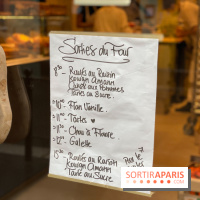 Sorties du Four
8h30 - Roulés au Raisin
Kouign Amann
Carré aux Pommes
Tarte au Sucre.
- Flan Vanille.
- Tartes ♥
- Chou à Fleure
- Galette
- Roulés au Raisin
Kouign Amann
Tarte au Sucre
SORTIRAPARIS